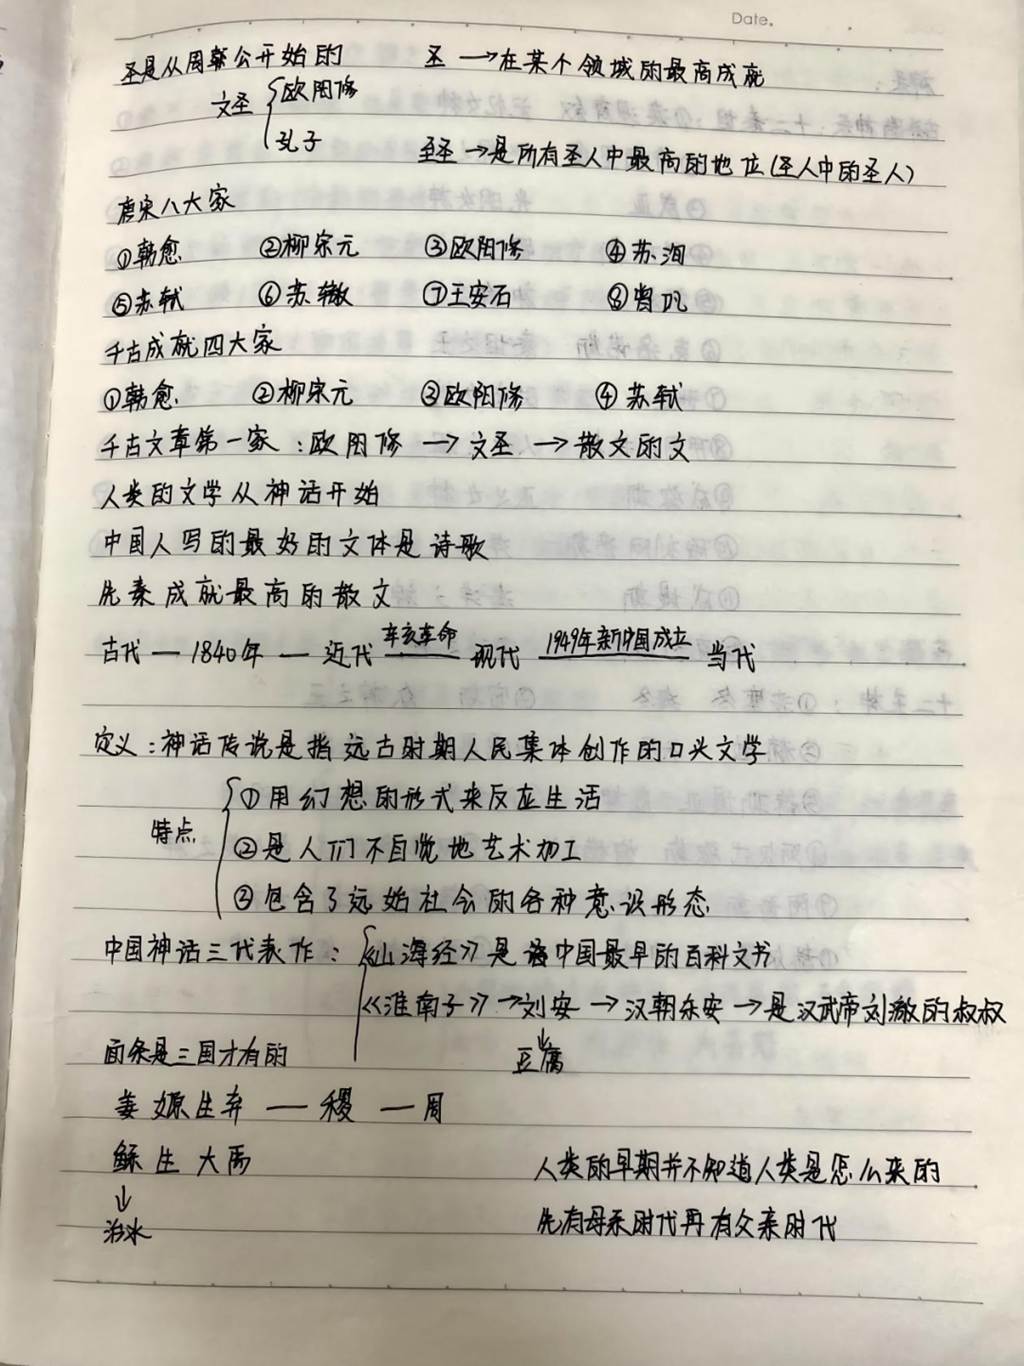 Date.
圣是从周公开始的 圣 →在某个领域的最高成就
文圣 欧阳修
孔子
至圣 →是所有圣人中最高的地位(圣人中的圣人)
唐宋八大家
①韩愈 ②柳宗元 ③欧阳修 ④苏洵
⑤苏轼 ⑥苏辙 ⑦王安石 ⑧曾巩
千古成就四大家
①韩愈 ②柳宗元 ③欧阳修 ④苏轼
千古文章第一家:欧阳修 →文圣 →散文的文
人类的文学从神话开始
中国人写的最好的文体是诗歌
先秦成就最高的散文
古代 — 1840年 — 近代 辛亥革命 现代 1949年新中国成立 当代
定义:神话传说是指远古时期人民集体创作的口头文学
①用幻想的形式来反应生活
特点
②是人们不自觉地艺术加工
③包含了远始社会的各种意识形态
中国神话三代表作:《山海经》是中国最早的百科文书
《淮南子》→刘安 →汉朝 →是汉武帝刘彻的叔叔
面条是三国才有的 豆腐
姜嫄生弃 — 稷 — 周
鲧生大禹 人类的早期并不知道人类是怎么来的
↓
治水 先有母系时代再有父亲时代